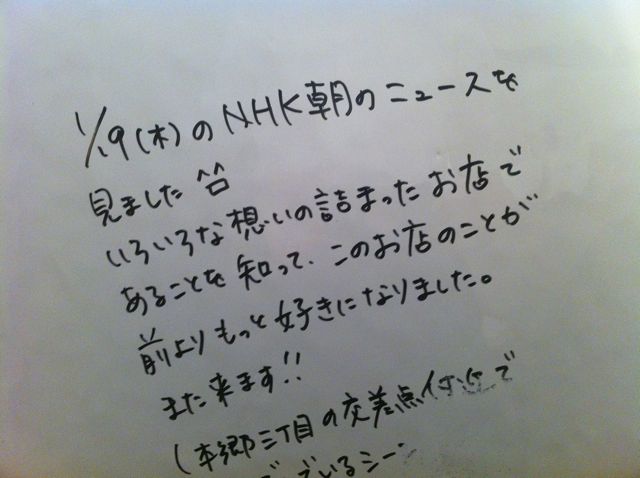 1/19(木)のNHK朝のニュースを
見ました^^
いろいろな想いの詰まったお店で
あることを知って、このお店のことが
前よりもっと好きになりました。
また来ます!!
(本郷三丁目の交差点付近で
でいるシーン